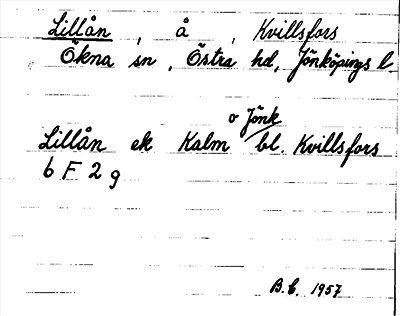 Lillån , å , Kvillsfors
Ökna sn , Östra hd, Jönköpings l
o Jönk
Lillån ek Kalm bl. Kvillsfors
6 F 2 g
B.E. 1957